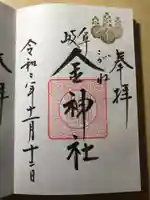 奉拝
岐阜
金神社
こがね
令和二年十二月十三日